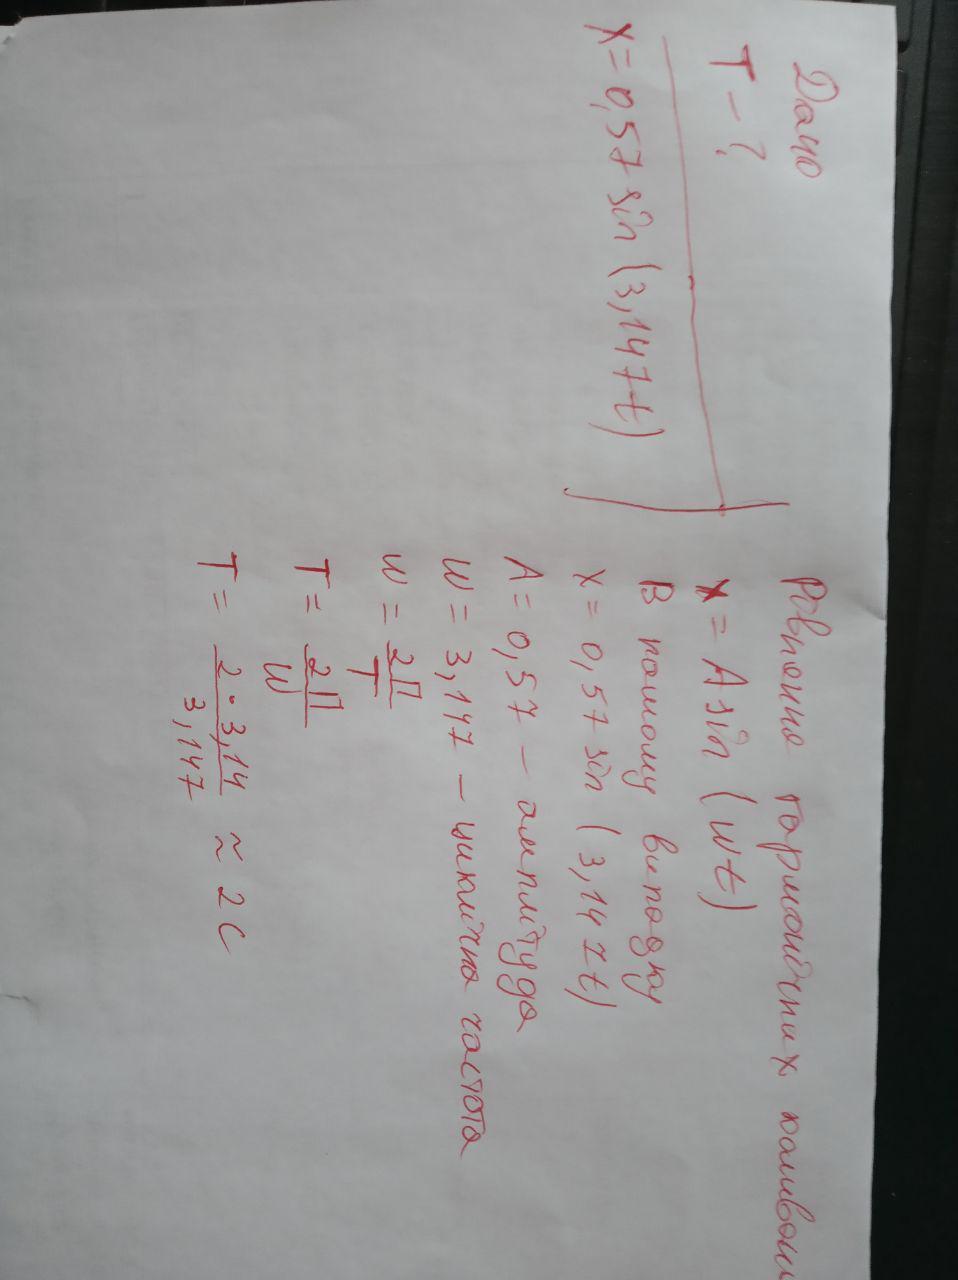 Дано
T - ?
x = 0,57 sin (3,147t)
Рівняння гармонічних коливань
x = A sin (Wt)
В нашому випадку
x = 0,57 sin (3,147t)
A = 0,57 - амплітуда
W = 3,147 - циклічна частота
W = 2П/T
T = 2П/W
T = 2·3,14/3,147 ≈ 2 с